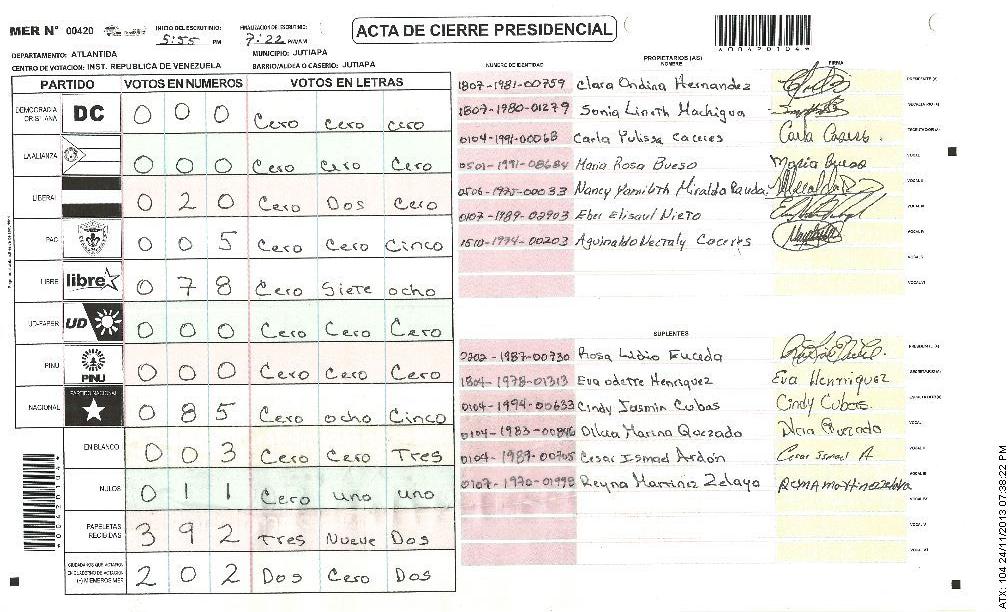 MER N° 00420
INICIO DEL ESCRUTINIO: 5:55 PM
FINALIZACION DE ESCRUTINIO: 7:22 PM/AM
ACTA DE CIERRE PRESIDENCIAL
DEPARTAMENTO: ATLANTIDA
MUNICIPIO: JUTIAPA
CENTRO DE VOTACION: INST. REPUBLICA DE VENEZUELA
BARRIO/ALDEA O CASERIO: JUTIAPA
PARTIDO VOTOS EN NUMEROS VOTOS EN LETRAS
DEMOCRACIA CRISTIANA DC 0 0 0 Cero Cero cero
LA ALIANZA 0 0 0 Cero Cero Cero
LIBERAL 0 2 0 Cero Dos Cero
PAC 0 0 5 Cero Cero Cinco
LIBRE libre 0 7 8 Cero Siete ocho
UD-FAPER UD 0 0 0 Cero Cero Cero
PINU PINU 0 0 0 Cero Cero Cero
NACIONAL PARTIDO NACIONAL 0 8 5 Cero ocho Cinco
EN BLANCO 0 0 3 Cero Cero Tres
NULOS 0 1 1 Cero uno uno
PAPELETAS RECIBIDAS 3 9 2 Tres Nueve Dos
CIUDADANOS QUE VOTARON EN CUADERNO DE VOTACION (+) MIEMBROS MER 2 0 2 Dos Cero Dos
PROPIETARIOS (AS)
NUMERO DE IDENTIDAD NOMBRE FIRMA
1807-1981-00759 Clara Ondina Hernandez PRESIDENTE (A)
1807-1980-01279 Sonia Lineth Machigua SECRETARIO (A)
0104-1991-00068 Carla Yulissa Caceres Carla Caceres ESCRUTADOR (A)
0501-1991-08684 Maria Rosa Bueso Maria Bueso VOCAL I
0506-1975-00033 Nancy Yamibeth Miralda VOCAL II
0107-1989-02903 Eber Elisaul Nieto VOCAL III
1510-1974-00203 Aguinaldo Nectaly Caceres VOCAL IV
VOCAL V
VOCAL VI
SUPLENTES
1987-00730 Rosa Lidio PRESIDENTE (A)
1804-1978-01313 Eva odette Henriquez Eva Henriquez SECRETARIO (A)
0104-1994-00633 Cindy Jasmin Cubas Cindy Cubas ESCRUTADOR (A)
0104-1983-00846 Dilcia Marina Quezado Dilcia Quezado VOCAL I
0104-1987-00705 Cesar Ismael Ardón Cesar Ismael A VOCAL II
0107-1970-01998 Reyna Martinez Zelaya VOCAL III
VOCAL IV
VOCAL V
VOCAL VI
ATX: 104 24/11/2013 07:38:22 PM